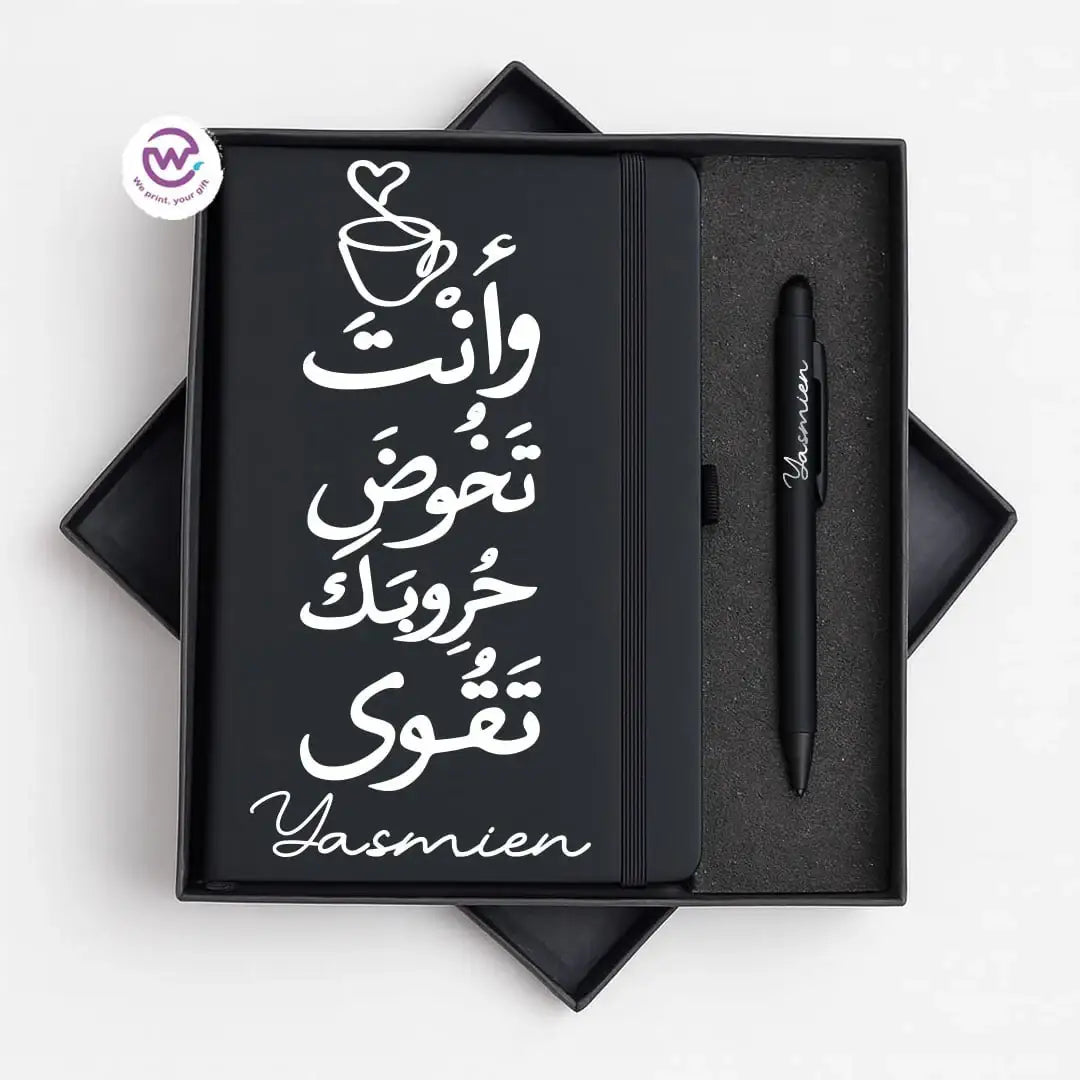 We print, your gift
وأَنْتَ
تَخُوضَ
حُرِوبَكَ
تَقُوى
Yasmien
Yasmien